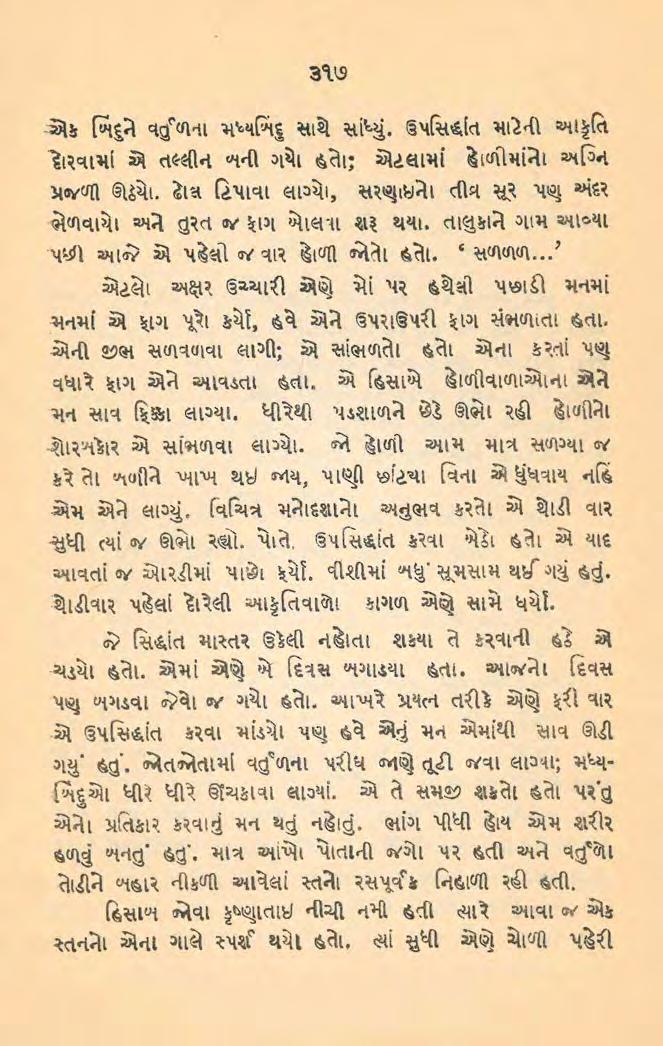 ૩૧૭
એક બિંદુને વર્તુળના મધ્યબિંદુ સાથે સાંધ્યું. ઉપસિદ્ધાંત માટેની આકૃતિ
દોરવામાં એ તલ્લીન બની ગયો હતો; એટલામાં હોળીમાંનો અગ્નિ
પ્રજળી ઊઠયો. ઢોલ ટિપાવા લાગ્યો, સરણાઇનો તીવ્ર સૂર પણ અંદર
ભેળવાયો અને તુરત જ ફાગ બોલવા શરૂ થયા. તાલુકાને ગામ આવ્યા
પછી આજે એ પહેલી જ વાર હોળી જોતો હતો. ‘ સળળળ...’
એટલો અક્ષર ઉચ્ચારી એણે મોં પર હથેલી પછાડી મનમાં
મનમાં એ ફાગ પૂરો કર્યો, હવે એને ઉપરાઉપરી ફાગ સંભળાતા હતા.
એની જીભ સળવળવા લાગી; એ સાંભળતો હતો એના કરતાં પણ
વધારે ફાગ એને આવડતા હતા. એ હિસાબે હોળીવાળાઓના એને
મન સાવ ફિક્કા લાગ્યા. ધીરેથી પડશાળને છેડે ઊભો રહી હોળીનો
શોરબકોર એ સાંભળવા લાગ્યો. જો હોળી આમ માત્ર સળગ્યા જ
કરે તો બળીને ખાખ થઇ જાય, પાણી છાંટયા વિના એ ધુંધવાય નહિં
એમ એને લાગ્યું. વિચિત્ર મનોદશાનો અનુભવ કરતો એ થોડી વાર
સુધી ત્યાં જ ઊભો રહ્યો. પોતે ઉપસિદ્ધાંત કરવા બેઠો હતો એ યાદ
આવતાં જ ઓરડીમાં પાછો ફર્યો. વીશીમાં બધું સૂમસામ થઈ ગયું હતું.
થોડીવાર પહેલાં દોરેલી આકૃતિવાળો કાગળ એણે સામે ધર્યો.
જે સિદ્ધાંત માસ્તર ઉકેલી નહોતા શકયા તે કરવાની હઠે એ
ચડયો હતો. એમાં એણે બે દિવસ બગાડયા હતા. આજનો દિવસ
પણ બગડવા જેવો જ ગયો હતો. આખરે પ્રયત્ન તરીકે એણે ફરી વાર
એ ઉપસિદ્ધાંત કરવા માંડયો પણ હવે એનું મન એમાંથી સાવ ઊડી
ગયું હતું. જોતજોતામાં વર્તુળના પરીઘ જાણે તૂટી જવા લાગ્યા; મધ્ય-
બિંદુઓ ધીરે ધીરે ઊંચકાવા લાગ્યાં. એ તે સમજી શકતો હતો પરંતુ
એનો પ્રતિકાર કરવાનું મન થતું નહોતું. ભાંગ પીધી હોય એમ શરીર
હળવું બનતું હતું. માત્ર આંખો પોતાની જગો પર હતી અને વર્તુળો
તોડીને બહાર નીકળી આવેલાં સ્તનો રસપૂર્વક નિહાળી રહી હતી.
હિસાબ જોવા કૃષ્ણાતાઇ નીચી નમી હતી ત્યારે આવા જ એક
સ્તનનો એના ગાલે સ્પર્શ થયો હતો. ત્યાં સુધી એણે ચોળી પહેરી